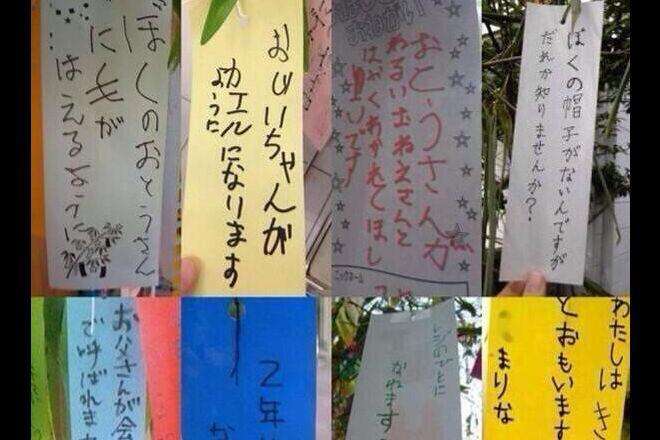 ぼくのおとうさん
に毛が
はえるように
おじいちゃんが
カエルになります
ように
おとうさんが
わるいおねえさんと
はやくわかれてほし
いです
ニックネーム
ぼくの帽子がないんですが
だれか知りませんか?
お父さんが会
で呼ばれま
2年
な
になれます
わたしは き
とおもいます
まりな